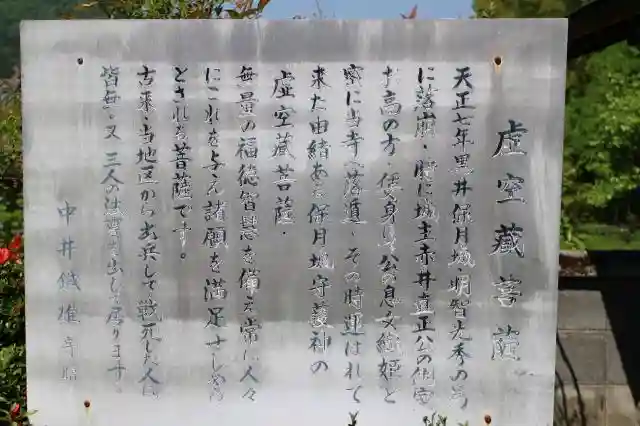 虚空蔵菩薩
天正七年黒井保月城・明智光秀の為
に落崩・時に城主赤井直正公の側室
お高の方・保身し公の息女織姫と
密に当寺へ落遁・その時運ばれて
来た由緒ある保月城守護神の
虚空蔵菩薩・
無量の福徳智慧を備え常に人々
にこれを与え諸願を満足せしめる
とされる菩薩です。
古来・当地区から出兵して戦死した人は
皆無・又 三人の法曹を出して居ります。
中井